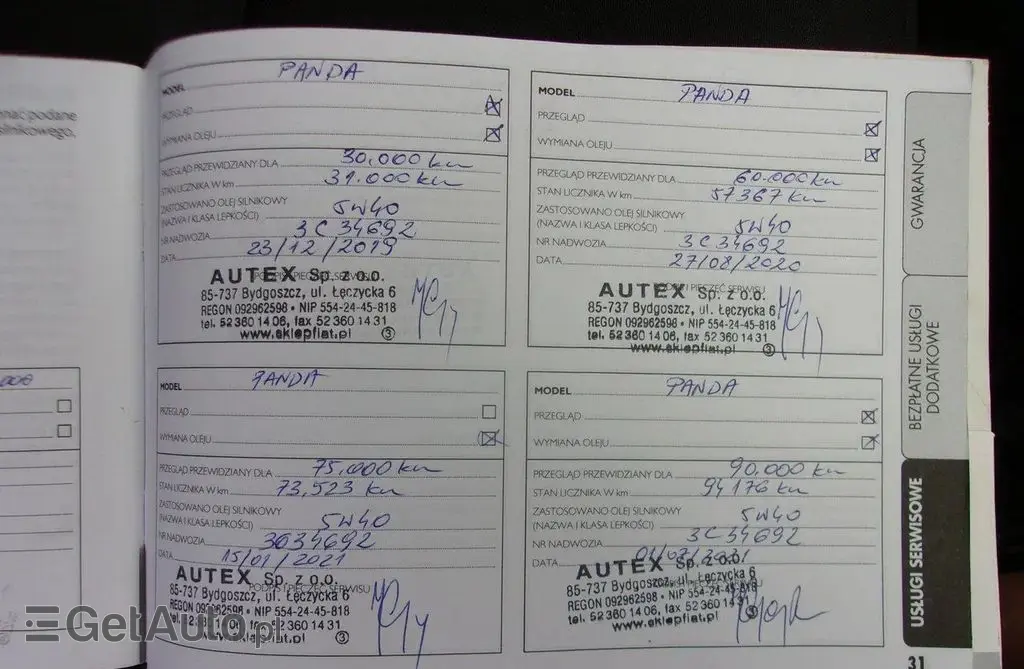 znać podane
silnikowego,
MODEL PANDA
PRZEGLĄD
WYMIANA OLEJU
PRZEGLĄD PRZEWIDZIANY DLA 30.000 km
STAN LICZNIKA W km 31.000 km
ZASTOSOWANO OLEJ SILNIKOWY
(NAZWA I KLASA LEPKOŚCI) 5W40
NR NADWOZIA 3C34692
DATA 23/12/2019
AUTEX Sp. z o.o.
85-737 Bydgoszcz, ul. Łęczycka 6
REGON 092962598 • NIP 554-24-45-818
tel. 52 360 14 06, fax 52 360 14 31
www.sklepfiat.pl 3
MODEL PANDA
PRZEGLĄD
WYMIANA OLEJU
PRZEGLĄD PRZEWIDZIANY DLA 60.000 km
STAN LICZNIKA W km 57367 km
ZASTOSOWANO OLEJ SILNIKOWY
(NAZWA I KLASA LEPKOŚCI) 5W40
NR NADWOZIA 3C34692
DATA 27/08/2020
AUTEX Sp. z o.o.
85-737 Bydgoszcz, ul. Łęczycka 6
REGON 092962598 • NIP 554-24-45-818
tel. 52 360 14 06, fax 52 360 14 31
www.sklepfiat.pl 3
MODEL PANDA
PRZEGLĄD
WYMIANA OLEJU
PRZEGLĄD PRZEWIDZIANY DLA 75.000 km
STAN LICZNIKA W km 73,523 km
ZASTOSOWANO OLEJ SILNIKOWY
(NAZWA I KLASA LEPKOŚCI) 5W40
NR NADWOZIA 3C34692
DATA 15/01/2021
AUTEX Sp. z o.o.
PODPIS I PIECZĘĆ SERWISU
85-737 Bydgoszcz, ul. Łęczycka 6
REGON 092962598 • NIP 554-24-45-818
tel. 52 360 14 06, fax 52 360 14 31
www.sklepfiat.pl 3
MODEL PANDA
PRZEGLĄD
WYMIANA OLEJU
PRZEGLĄD PRZEWIDZIANY DLA 90.000 km
STAN LICZNIKA W km 94176 km
ZASTOSOWANO OLEJ SILNIKOWY
(NAZWA I KLASA LEPKOŚCI) 5W40
NR NADWOZIA 3C34692
DATA
AUTEX Sp. z o.o.
85-737 Bydgoszcz, ul. Łęczycka 6
REGON 092962598 • NIP 554-24-45-818
tel. 52 360 14 06, fax 52 360 14 31
www.sklepfiat.pl
GWARANCJA
BEZPŁATNE USŁUGI
DODATKOWE
USŁUGI SERWISOWE
31
GetAuto.pl